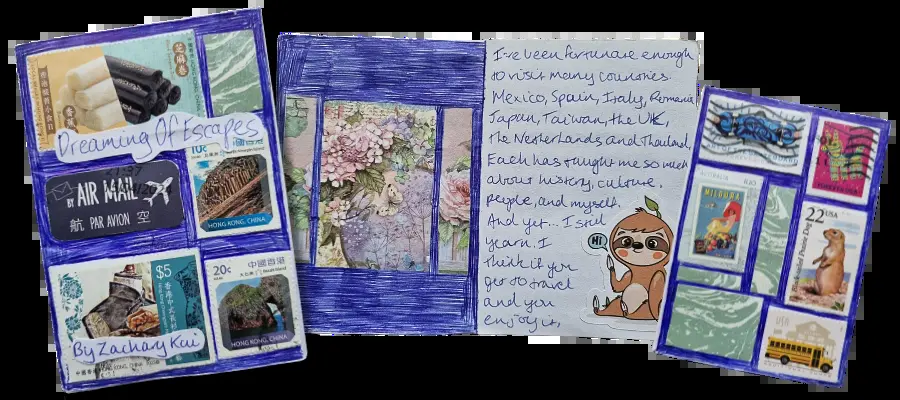 芝麻卷
Dreaming Of Escapes
BY AIR MAIL
航 PAR AVION 空
10c
HONG KONG, CHINA
$5
20c
中國香港
HONG KONG, CHINA
By Zachary Kai
I've been fortunate enough
to visit many countries.
Mexico, Spain, Italy, Romania,
Japan, Taiwan, the UK,
the Netherlands and Thailand,
Each has taught me so much
about history, culture,
people, and myself.
And yet... I still
yearn. I
think if you
get to travel
and you
enjoy it,
HI
AUSTRALIA
MILDURA
22 USA
Black-tailed Prairie Dog
USA